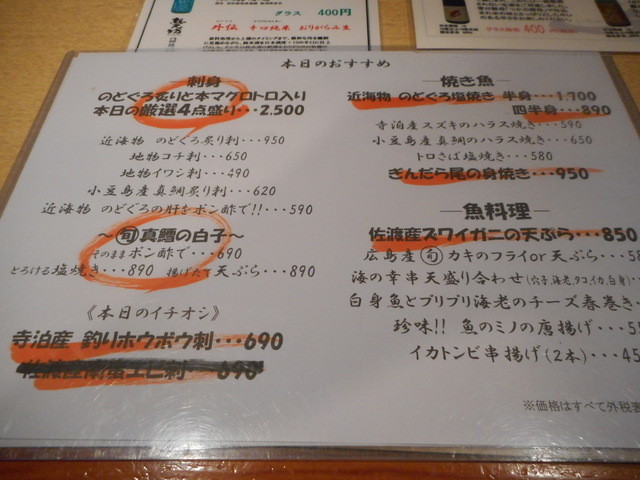 グラス 400円
外伝 辛口純米 おりがらみ生
グラス価格 400
本日のおすすめ
刺身
のどぐろ炙りと本マグロトロ入り
本日の厳選4点盛り・・・2.500
近海物 のどぐろ炙り刺・・・950
地物コチ刺・・・650
地物イワシ刺・・・490
小豆島産真鯛炙り刺・・・620
近海物 のどぐろの肝をポン酢で!!・・・590
～旬真鱈の白子～
そのままポン酢で・・・690
とろける塩焼き・・・890 揚げたて天ぷら・・・890
《本日のイチオシ》
寺泊産 釣りホウボウ刺・・・690
佐渡産南蛮エビ刺 ・・・690
―焼き魚―
近海物 のどぐろ塩焼き 半身・・・1,700
四半身・・・890
寺泊産スズキのハラス焼き・・・590
小豆島産真鯛のハラス焼き・・・650
トロさば塩焼き・・・580
ぎんだら尾の身焼き・・・950
―魚料理―
佐渡産ズワイガニの天ぷら・・・850
広島産旬カキのフライor天ぷら・・・58
海の幸串天盛り合わせ(穴子,海老,タコ,イカ,白身)
白身魚とプリプリ海老のチーズ春巻き・
珍味!! 魚のミノの唐揚げ・・・5
イカトンビ串揚げ(2本)・・・45
※価格はすべて外税表